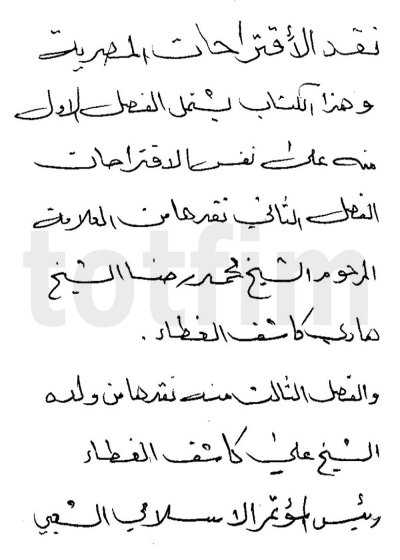 نقد الأقتراحات المصرية
وهذا الكتاب يشتمل الفصل الاول
منه على نفس الاقتراحات
الفصل الثاني نقدها من العلامة
المرحوم الشيخ محمد رضا الشيخ
هادي كاشف الغطاء .
والفصل الثالث منه نقدها من ولده
الشيخ علي كاشف الغطاء
رئيس المؤتمر الاسلامي الشعبي
totfim